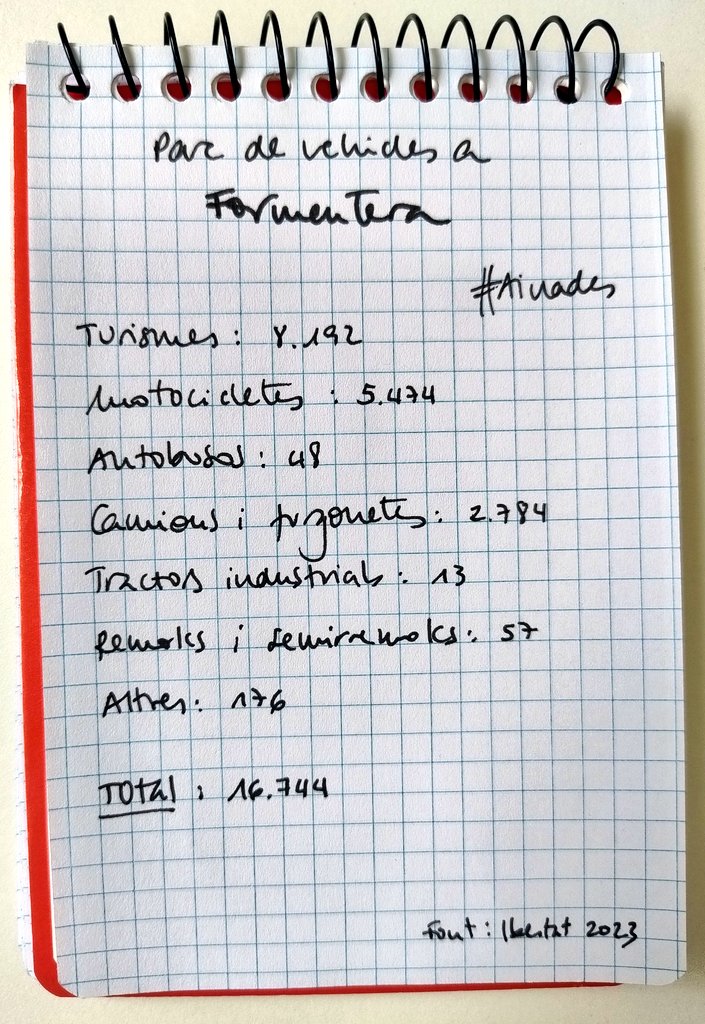 Parc de vehicles a
Formentera
#Ainades
Turismes: 8.192
Motocicletes: 5.474
Autobusos: 48
Camions i furgonetes: 2.784
Tractors industrials: 13
Remolcs i semirremolcs: 57
Altres: 176
Total: 16.744
Font: Ibestat 2023